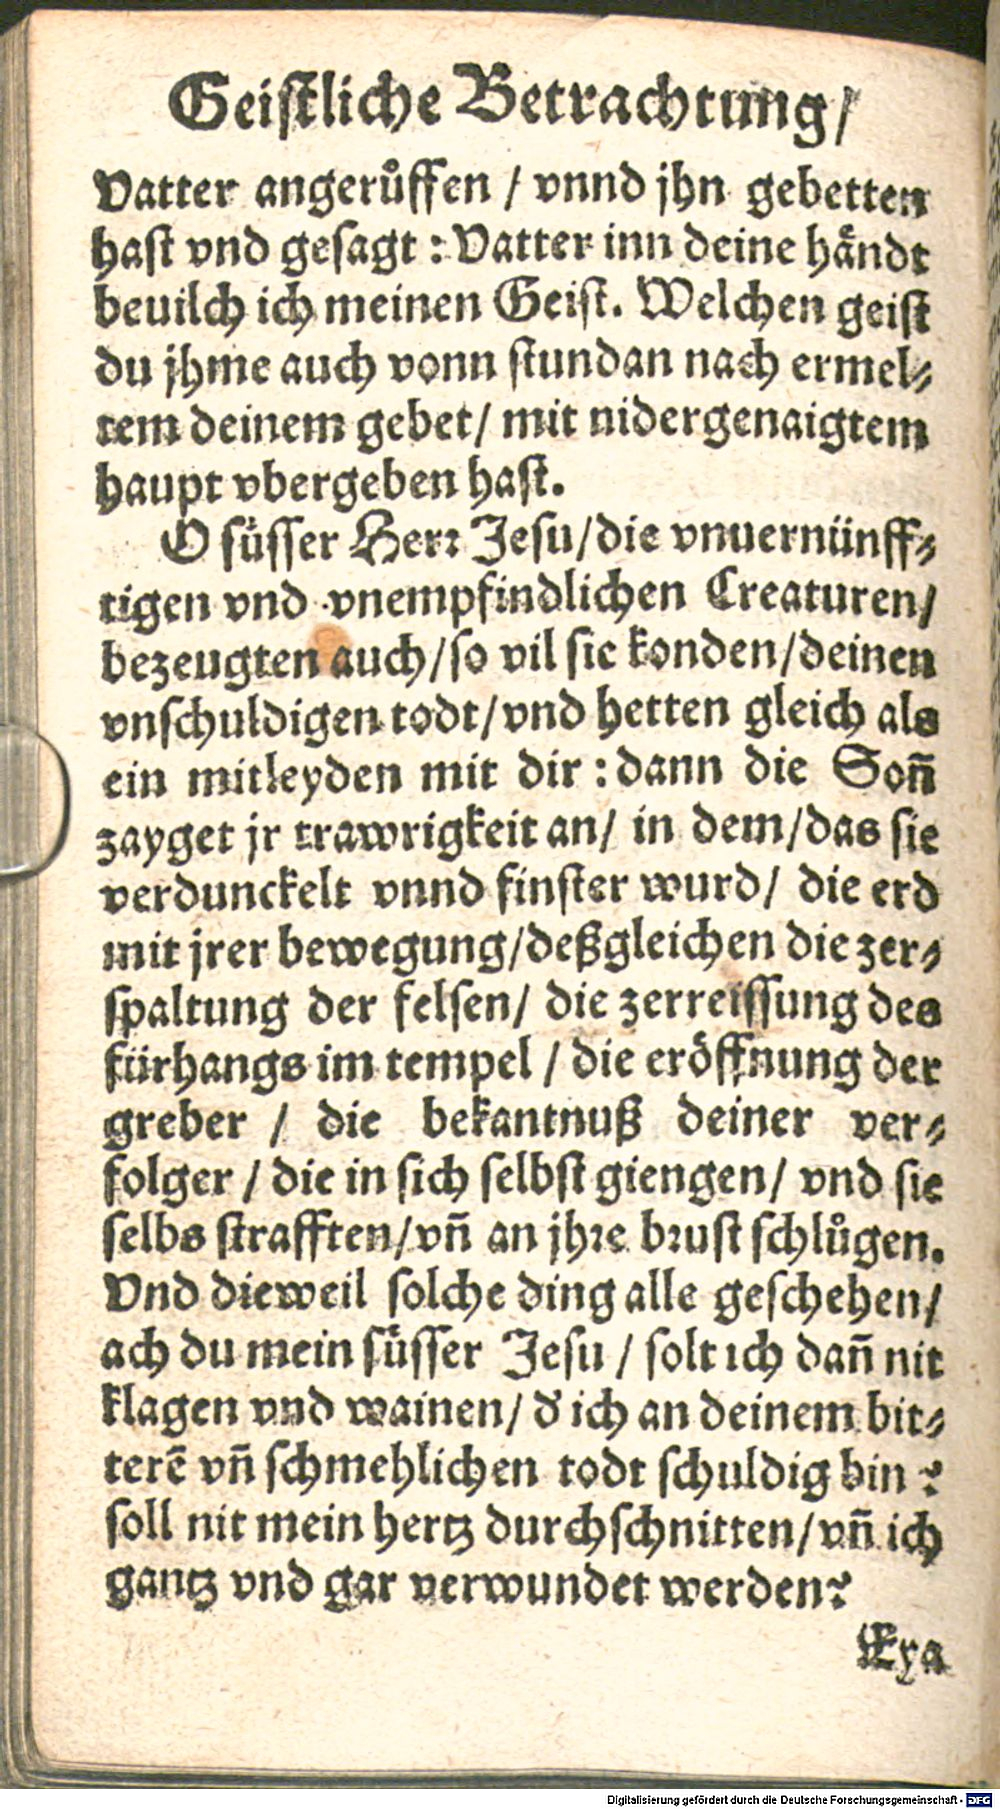 Geiſtliche Betrachtung/
Vatter angeruͤffen / vnnd jhn gebetten
haſt vnd geſagt : Vatter inn deine haͤndt
beuilch ich meinen Geiſt. Welchen geiſt
du jhme auch vonn ſtundan nach ermel⸗
tem deinem gebet/ mit nidergenaigtem
haupt vbergeben haſt.
O ſuͤſſer Herꝛ Jeſu/die vnuernünff⸗
tigen vnd vnempfindlichen Creaturen/
bezeugten auch/ſo vil ſie konden/deinen
vnſchuldigen todt/vnd hetten gleich als
ein mitleyden mit dir : dann die Soñ
zayget jr trawrigkeit an/ in dem/das ſie
verdunckelt vnnd finſter wurd/ die erd
mit jrer bewegung/deßgleichen die zer⸗
ſpaltung der felſen/ die zerreiſſung des
fürhangs im tempel / die eroͤffnung der
greber / die bekantnuß deiner ver⸗
folger / die in ſich ſelbſt giengen/ vnd ſie
ſelbs ſtrafften/vñ an jhꝛe bꝛuſt ſchluͤgen.
Vnd dieweil ſolche ding alle geſchehen/
ach du mein ſuͤſſer Jeſu / ſolt ich dañ nit
klagen vnd wainen/ d̕ ich an deinem bit⸗
terē vñ ſchmehlichen todt ſchuldig bin ?
ſoll nit mein hertz durchſchnitten/vñ ich
gantz vnd gar verwundet werden?
Eya
Digitalisierung gefördert durch die Deutsche Forschungsgemeinschaft - DFG